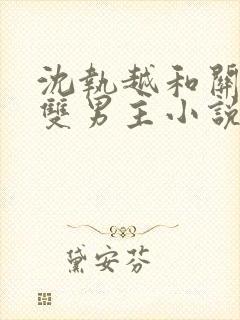 沈執越和關
雙男主小說
黛安芬